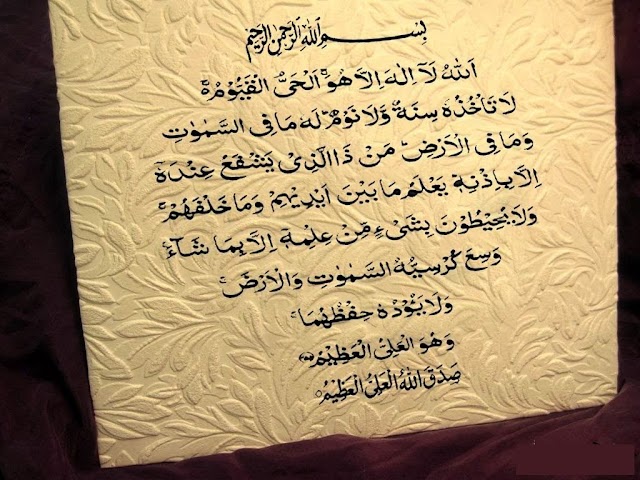 بِسْمِ اللهِ الرَّحْمٰنِ الرَّحِيْمِ
اَللهُ لَآ اِلٰهَ اِلَّا هُوَۚ اَلْحَىُّ الْقَيُّوْمُۚ
لَا تَاْخُذُهٗ سِنَةٌ وَّلَا نَوْمٌؕ لَهٗ مَا فِى السَّمٰوٰتِ
وَمَا فِى الْاَرْضِؕ مَنْ ذَا الَّذِىْ يَشْفَعُ عِنْدَهٗۤ
اِلَّا بِاِذْنِهٖؕ يَعْلَمُ مَا بَيْنَ اَيْدِيْهِمْ وَمَا خَلْفَهُمْۚ
وَلَا يُحِيْطُوْنَ بِشَىْءٍ مِّنْ عِلْمِهٖۤ اِلَّا بِمَا شَآءَۚ
وَسِعَ كُرْسِيُّهُ السَّمٰوٰتِ وَالْاَرْضَۚ
وَلَا يَئُوْدُهٗ حِفْظُهُمَاۚ
وَهُوَ الْعَلِىُّ الْعَظِيْمُ
صَدَقَ اللهُ الْعَلِىُّ الْعَظِيْمُ